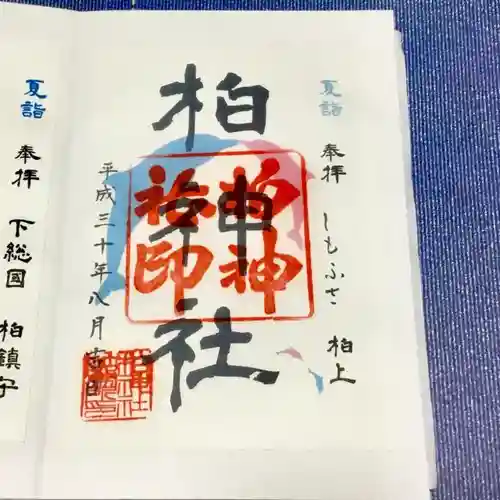 夏詣
奉拝 しもふさ 柏上
柏神社
柏神社印
平成三十年八月吉日
夏詣
奉拝 下総國 柏鎮守